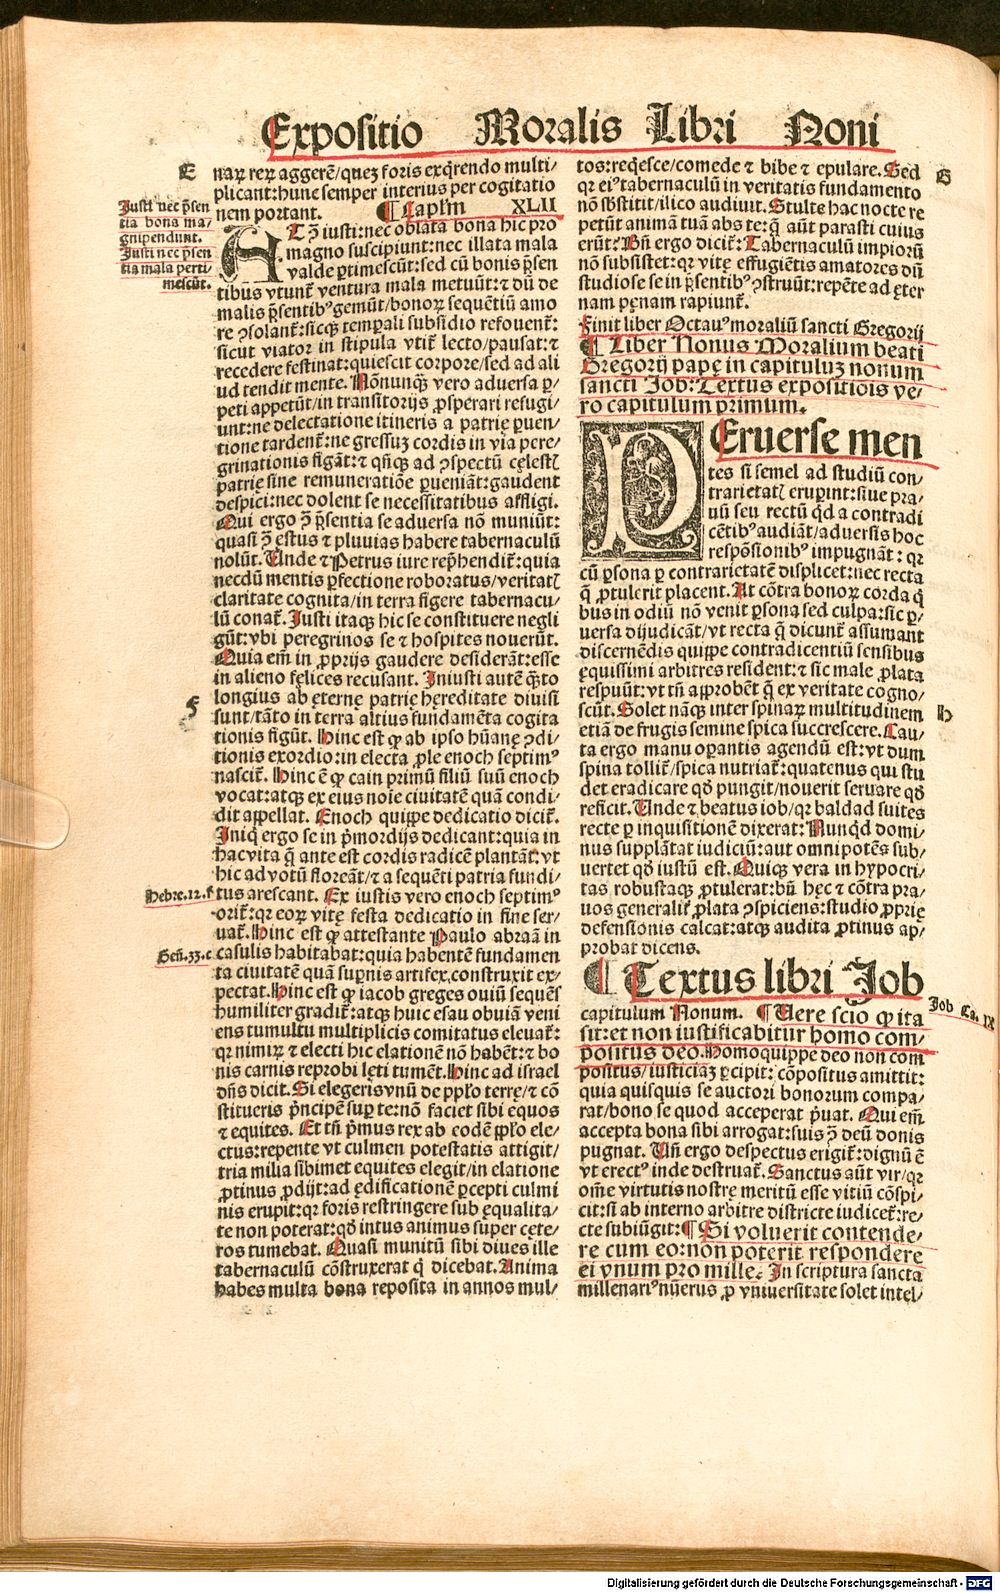 Expositio Moralis Libri Noni
E
naꝝ reꝝ aggerē/quez foris exq̄rendo multi/
plicant:hunc semper interius per cogitatio
nem portant. ¶ Capl̄m XLII
Justi nec p̄sen
tia bona ma/
gnipendunt.
Justi nec p̄sen
tia mala perti/
mescūt.
AT ꝯ̄ iusti:nec oblata bona hic pro
magno suscipiunt:nec illata mala
valde ꝑtimescūt:sed cū bonis p̄sen
tibus vtunt̄ ventura mala metuūt:⁊ dū de
malis p̄sentibꝰ gemūt/bonoꝝ sequētiū amo
re ꝯsolant̄:sicqꝫ temꝑali subsidio refouent̄:
sicut viator in stipula vtit̄ lecto/pausat:⁊
recedere festinat:quiescit corpore/sed ad ali
ud tendit mente. Nōnunqꝫ vero aduersa ꝑ/
peti appetūt/in transitorijs ꝓsperari refugi/
unt:ne delectatione itineris a patrię ꝑuen/
tione tardent̄:ne gressuz cordis in via pere/
grinationis figāt:⁊ qn̄qꝫ ad ꝯspectū cęlestꝭ
patrię sine remuneratiōe ꝑueniāt:gaudent
despici:nec dolent se necessitatibus affligi.
Qui ergo ꝯ̄ p̄sentia se aduersa nō muniūt:
quasi ꝯ̄ ęstus ⁊ pluuias habere tabernaculū
nolūt. Unde ⁊ Petrus iure rep̄hendit̄:quia
necdū mentis ꝑfectione roboratus/veritatꝭ
claritate cognita/in terra figere tabernacu/
lū conat̄. Justi itaqꝫ hic se constituere negli
gūt:vbi peregrinos se ⁊ hospites nouerūt.
Quia em̄ in ꝓprijs gaudere desiderāt:esse
in alieno fęlices recusant. Iniusti autē q̄to
longius ab ęternę patrię hęreditate diuisi
F
sunt/tāto in terra altius fundamēta cogita
tionis figūt. Hinc est ꝙ ab ipso hūanę ꝯdi/
tionis exordio:in electa ꝓle enoch septimꝰ
nascit̄. Hinc ē ꝙ cain primū filiū suū enoch
vocat:atqꝫ ex eius noīe ciuitatē quā condi/
dit appellat. Enoch quippe dedicatio dicit̄.
Iniq̄ ergo se in p̄mordijs dedicant:quia in
hac vita q̄ ante est cordis radicē plantāt:vt
hic ad votū floreāt/⁊ a sequēti patria fundi/
Hebre.12.f
tus arescant. Ex iustis vero enoch septimꝰ
orit̄:qꝛ eoꝝ vitę festa dedicatio in fine ser/
uat̄. Hinc est ꝙ attestante Paulo abraā in
Geñ.33.c
casulis habitabat:quia habentē fundamen
ta ciuitatē quā suꝑnis artifex construxit ex/
pectat. Hinc est ꝙ iacob greges ouiū sequēs
humiliter gradit̄:atqꝫ huic esau obuiā veni
ens tumultu multiplicis comitatus eleuat̄:
qꝛ nimiꝝ ⁊ electi hic elationē nō habēt:⁊ bo
nis carnis reprobi lęti tumēt. Hinc ad israel
dn̄s dicit. Si elegeris vnū de ppl̄o terrę/⁊ cō
stitueris p̄ncipē suꝑ te:nō faciet sibi equos
⁊ equites. Et tn̄ p̄mus rex ab eodē ppl̄o ele/
ctus:repente vt culmen potestatis attigit/
tria milia sibimet equites elegit/in elatione
ꝓtinus ꝓdijt:ad ędificationē ꝑcepti culmi
nis erupit:qꝛ foris restringere sub ęqualita/
te non poterat:qd̄ intus animus super cęte/
ros tumebat. Quasi munitū sibi diues ille
tabernaculū cōstruxerat q̄ dicebat. Anima
habes multa bona reposita in annos mul/
tos:reqͥesce/comede ⁊ bibe ⁊ epulare. Sed
G
qꝛ eiꝰ tabernaculū in veritatis fundamento
nō sb̄stitit/ilico audiuit. Stulte hac nocte re
petūt animā tuā abs te:q̄ aūt parasti cuius
erūt? Bn̄ ergo dicit̄:Tabernaculū impiorū
nō subsistet:qꝛ vitę effugiētis amatores dū
studiose se in p̄sentibꝰ ꝯstruūt:repēte ad ęter
nam pęnam rapiunt̄.
Finit liber Octauꝰ moraliū sancti Gregorij
¶ Liber Nonus Moralium beati
Gregorij papę in capituluz nonum
sancti Job:Textus expositiōis ve/
ro capitulum primum.
PEruerse men
tes si semel ad studiū con/
trarietatꝭ eruꝑint:siue pra/
uū seu rectū qd̄ a contradi
cētibꝰ audiāt/aduersis hoc
respōsionibꝰ impugnāt : qꝛ
cū ꝑsona ꝑ contrarietatē displicet:nec recta
q̄ ꝓtulerit placent. At cōtra bonoꝝ corda q̄
bus in odiū nō venit ꝑsona sed culpa:sic ꝑ/
uersa dijudicāt/vt recta q̄ dicunt̄ assumant
discernēdis quippe contradicentiū sensibus
ęquissimi arbitres resident:⁊ sic male ꝓlata
respuūt:vt tn̄ approbēt q̄ ex veritate cogno/
scūt. Solet nāqꝫ inter spinaꝝ multitudinem
H
etiā de frugis semine spica succrescere. Cau/
ta ergo manu oꝑantis agendū est:vt dum
spina tollit̄/spica nutriat̄:quatenus qui stu
det eradicare qd̄ pungit/nouerit seruare qd̄
reficit. Unde ⁊ beatus iob/qꝛ baldad suites
recte ꝑ inquisitionē dixerat: Nunqd̄ domi/
nus supplātat iudiciū:aut omnipotēs sub/
uertet qd̄ iustū est. Quiqꝫ vera in hypocri/
tas robustaqꝫ ꝓtulerat:bn̄ hęc ⁊ cōtra pra/
uos generalit̄ ꝓlata ꝯspiciens:studio ꝓprię
defensionis calcat:atqꝫ audita ꝓtinus ap/
probat dicens.
¶ Textus libri Job
capitulum Nonum. ¶ Uere scio ꝙ ita
Job Ca. IX
sit:et non iustificabitur homo com/
positus deo. Homo quippe deo non com
positus/iusticiaꝫ ꝑcipit: cōpositus amittit:
quia quisquis se auctori bonorum compa/
rat/bono se quod acceperat p̄uat. Qui em̄
accepta bona sibi arrogat:suis ꝯ̄ deū donis
pugnat. Un̄ ergo despectus erigit̄:dignū ē
vt erectꝰ inde destruat̄. Sanctus aūt vir/qꝛ
om̄e virtutis nostrę meritū esse vitiū cōspi/
cit:si ab interno arbitre districte iudicet̄:re/
cte subiūgit:¶ Si voluerit contende/
re cum eo:non poterit respondere
ei vnum pro mille. In scriptura sancta
millenariꝰ nūerus ꝓ vniuersitate solet intel/
Digitalisierung gefördert durch die Deutsche Forschungsgemeinschaft - DFG